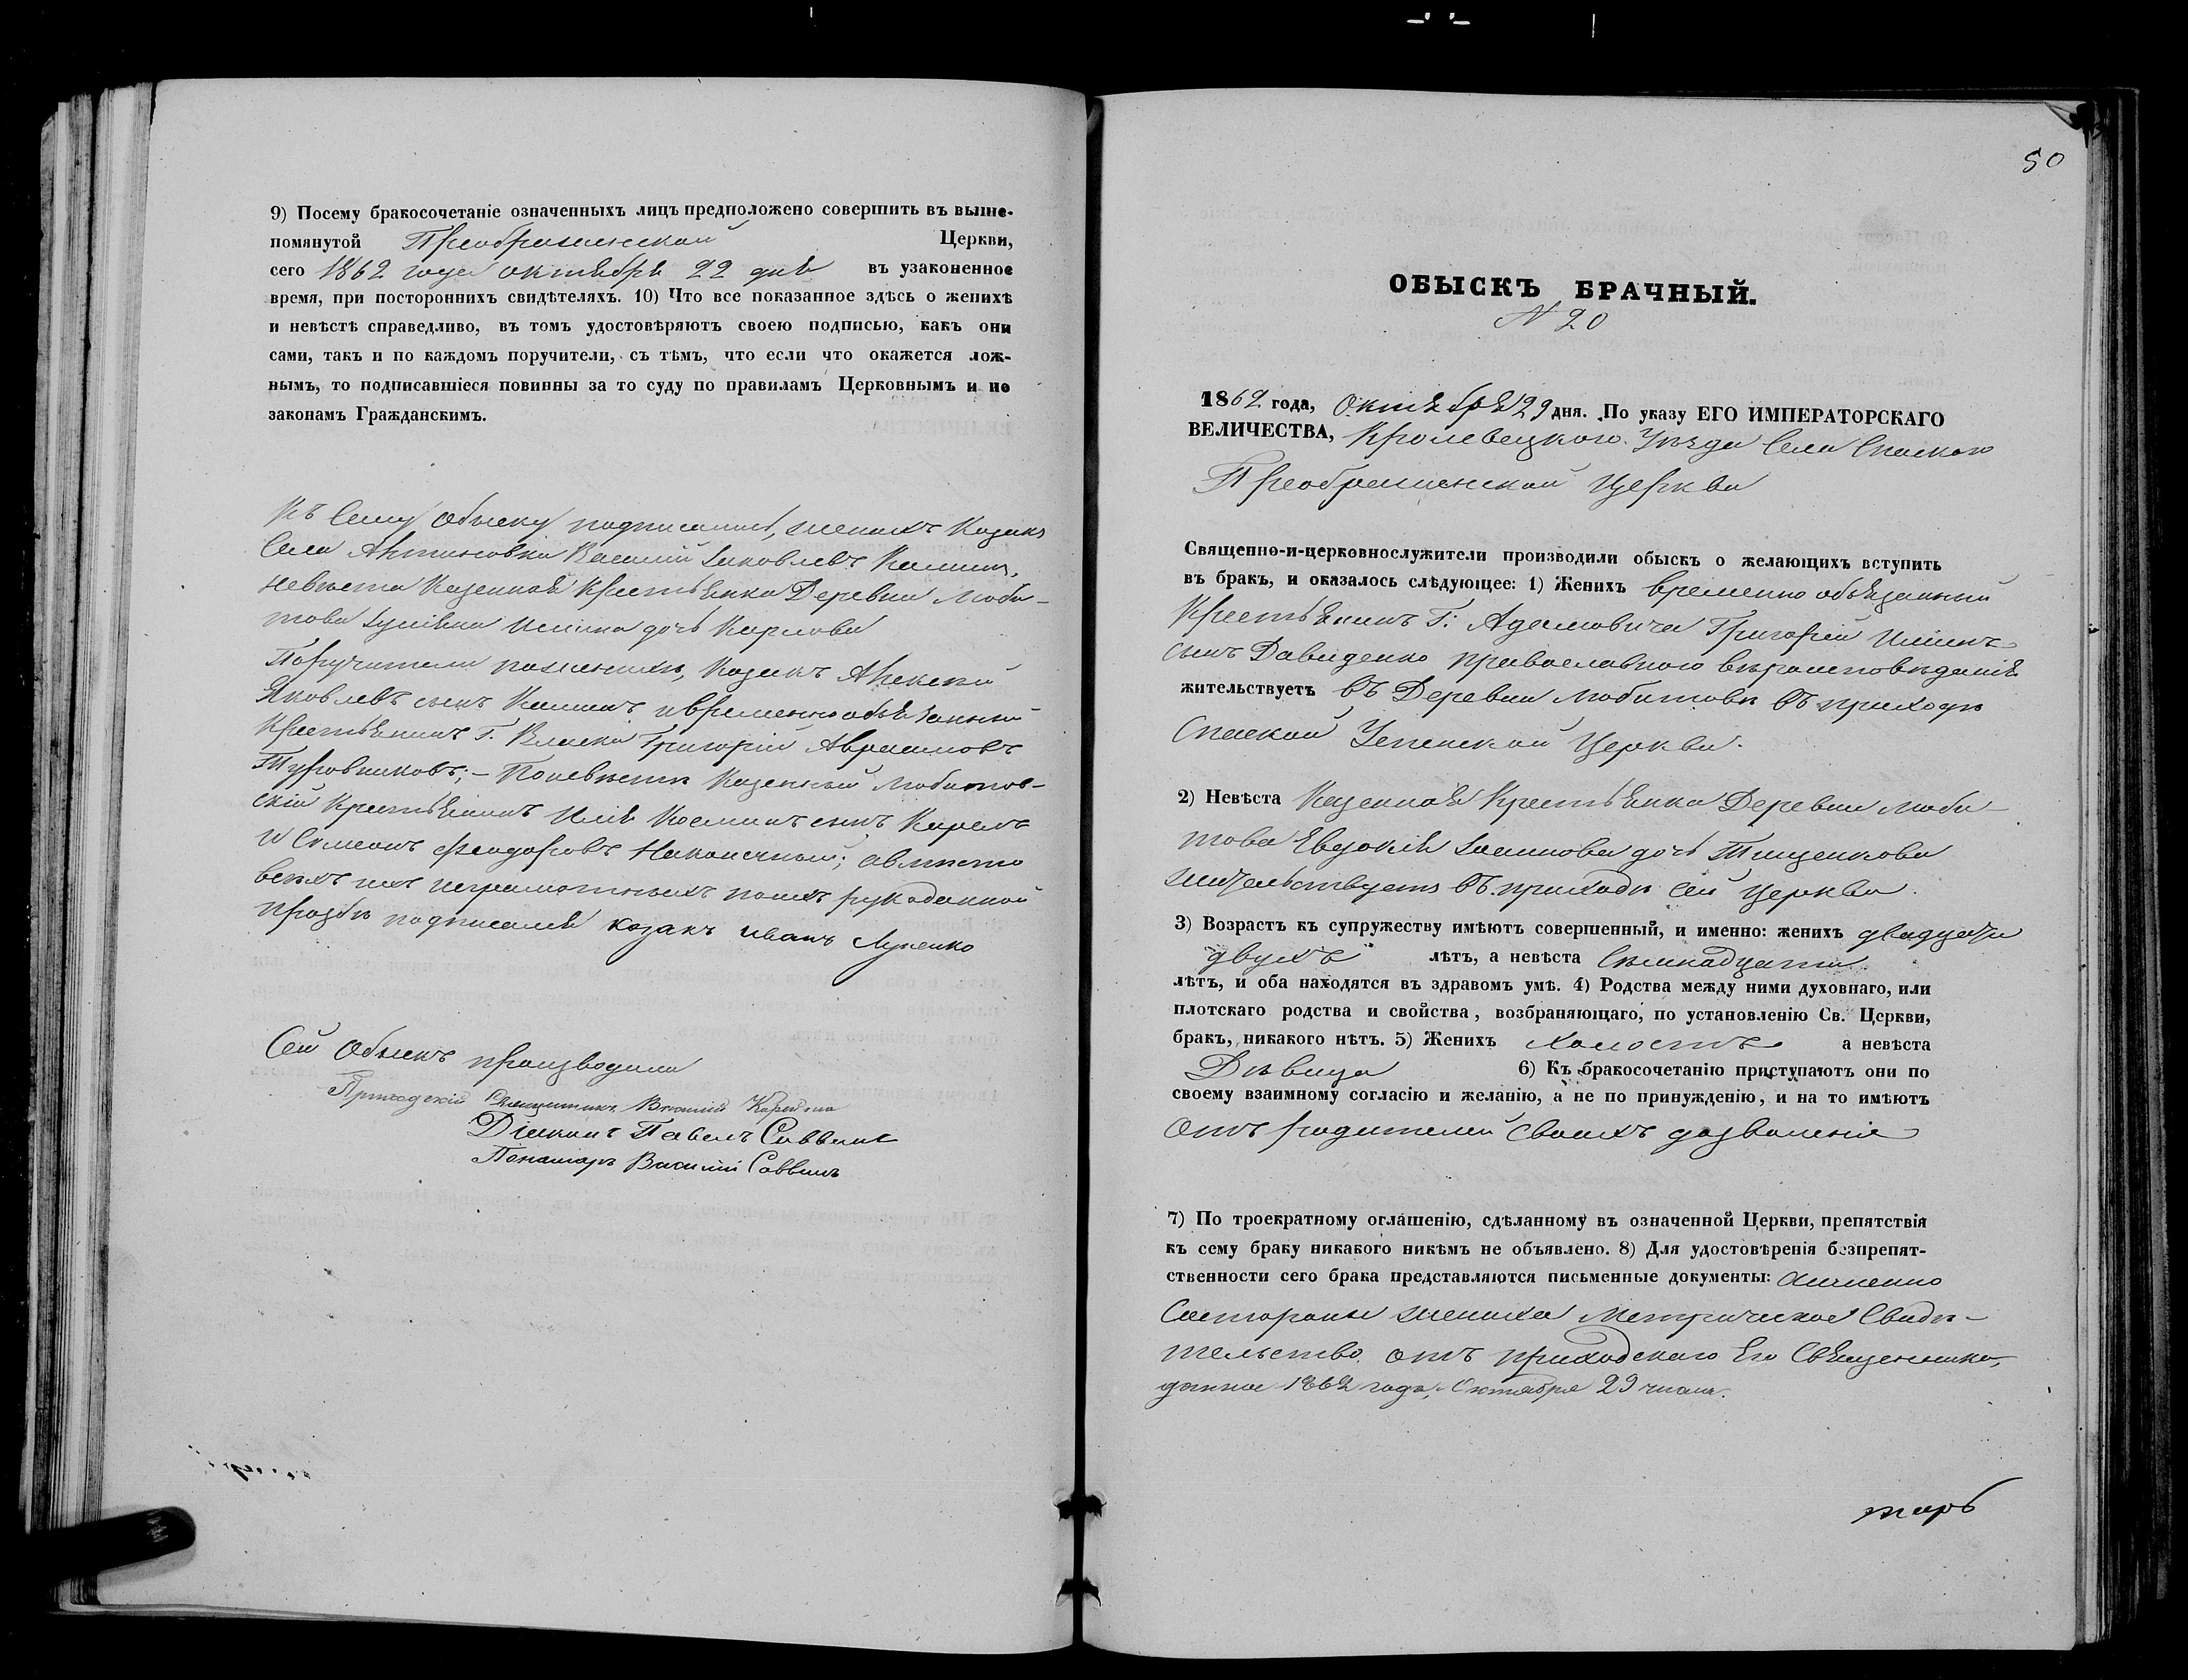 9) Посему бракосочетаніе означенныхъ лицъ предположено совершить въ выше-
помянутой Преображенской Церкви,
сего 1862 года октября 22 дня въ узаконенное
время, при постороннихъ свидѣтеляхъ. 10) Что все показанное здѣсь о женихѣ
и невѣстѣ справедливо, въ томъ удостовѣряютъ своею подписью, какъ они
сами, такъ и по каждомъ поручители, съ тѣмъ, что если что окажется лож-
нымъ, то подписавшіеся повинны за то суду по правиламъ Церковнымъ и по
законамъ Гражданскимъ.
Къ сему обыску подписались, женихъ Козакъ
Села Антоновки Василій Іаковлевъ
невѣста Казенная Крестьянка Деревни Люби-
това Іуліяна Ильина дочь Карпова
Поручители по женихѣ, Козакъ Алексѣй
Яковлевъ сынъ и временно обязанный
Крестьянинъ Г. Григорій Аврамовъ
По невѣстѣ Казенный Любитов-
скій Крестьянинъ Илія Косминъ сынъ
И Симеонъ Феодоровъ; а вмѣсто
всѣхъ ихъ неграмотныхъ по ихъ рукоданной
прозбѣ подписался козакъ Иванъ Луценко
Сей Обыскъ производили
Приходскій Священникъ Василій
Діаконъ Павелъ Саввинъ
Пономарь Василій Саввинъ
50
ОБЫСКЪ БРАЧНЫЙ.
N 20
1862 года, Октября 29 дня. По указу ЕГО ИМПЕРАТОРСКАГО
ВЕЛИЧЕСТВА, Кролевецкого Уѣзда Села Спаского
Преображенской Церкви
Священно-и-церковнослужители производили обыскъ о желающихъ вступить
въ бракъ, и оказалось слѣдующее: 1) Женихъ временно обязанный
Крестьянинъ Г: Адамовича Григорій Ильинъ
сынъ Давиденко православного вѣроисповѣданія
жительствуетъ въ Деревни Любитовѣ въ приходѣ
Спаской Успенской Церкви.
2) Невѣста Казенная Крестьянка Деревни Люби-
това Евдокія дочь Тищенкова
жительствуетъ въ приходѣ сей Церкви.
3) Возрастъ къ супружеству имѣютъ совершенный, и именно: женихъ двадцати
двухъ лѣтъ, а невѣста Семнадцати
лѣтъ, и оба находятся въ здравомъ умѣ. 4) Родства между ними духовнаго, или
плотскаго родства и свойства, возбраняющаго, по установленію Св. Церкви,
бракъ, никакого нѣтъ. 5) Женихъ холостъ а невѣста
Дѣвица 6) Къ бракосочетанію приступаютъ они по
своему взаимному согласію и желанію, а не по принужденію, и на то имѣютъ
отъ родителей своихъ дозволеніе
7) По троекратному оглашенію, сдѣланному въ означенной Церкви, препятствія
къ сему браку никакого никѣмъ не объявлено. 8) Для удостовѣренія безпрепят-
ственности сего брака представляются письменные документы: а именно
Состороны жениха Метрическое Свидѣ-
тельство отъ приходскаго Его Священника,
данное 1862 года, Октября 29 числа.